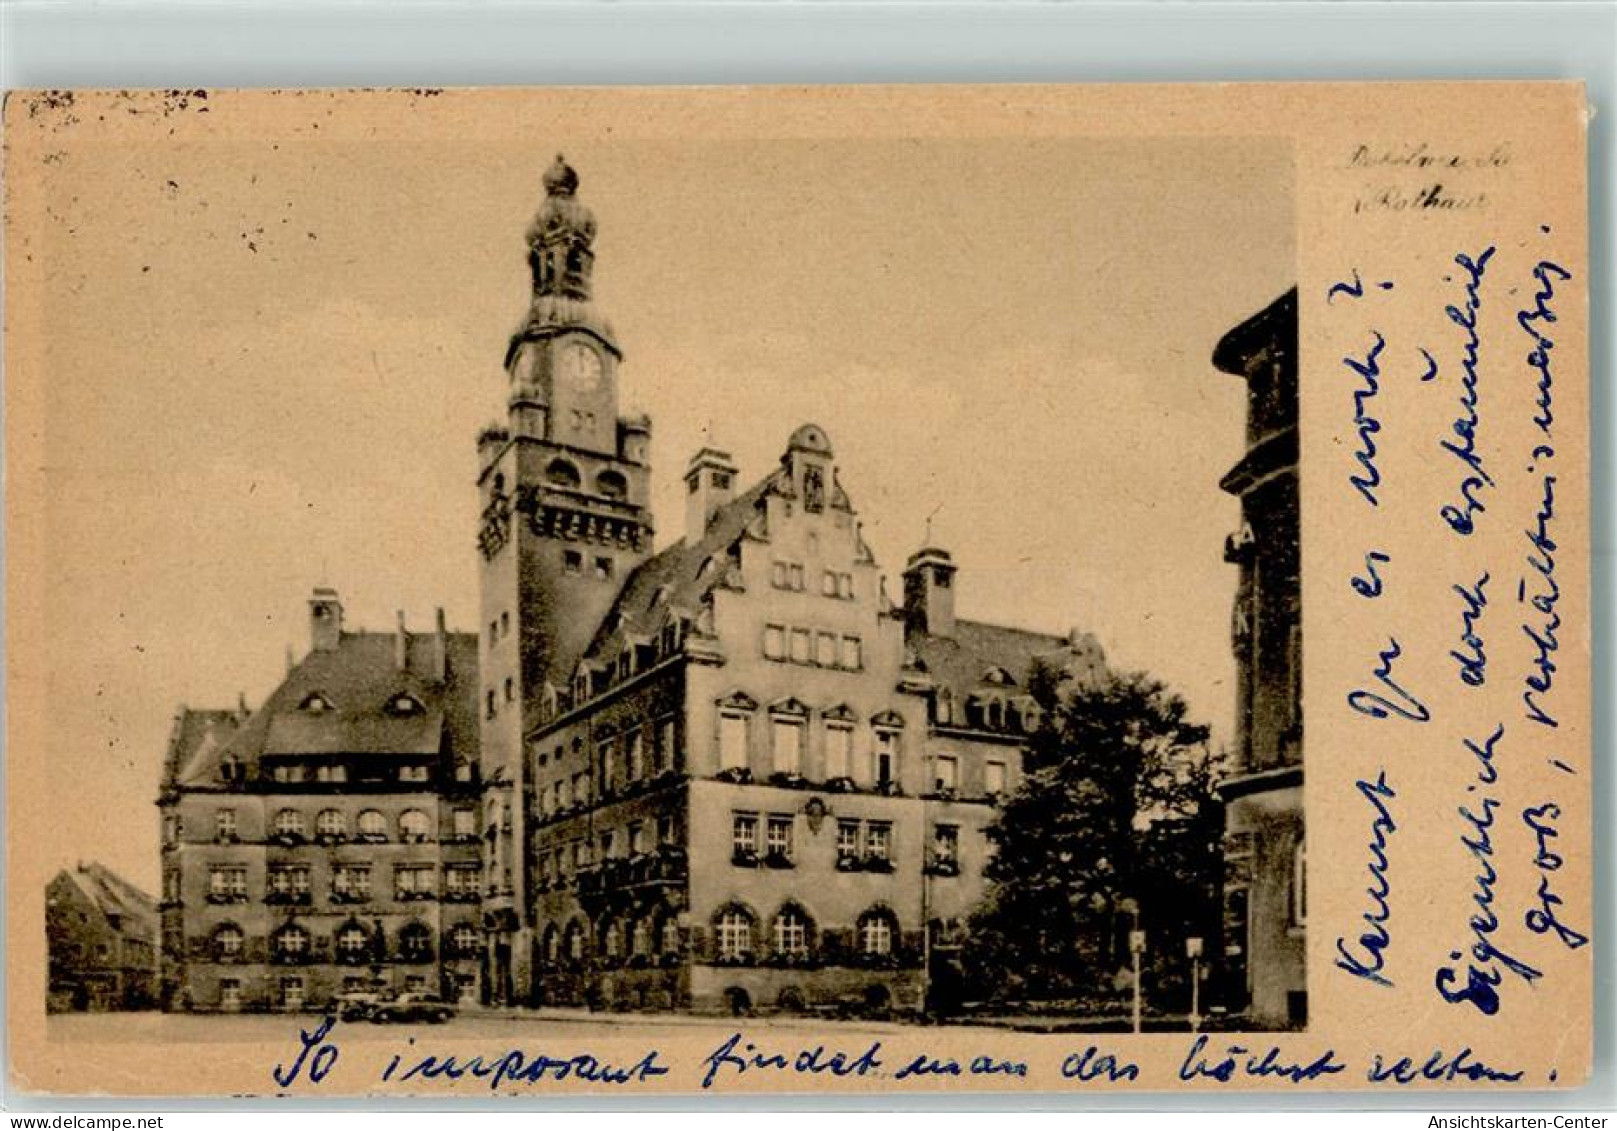 Rathaus
Kannst Du es noch?
Eigentlich doch erstaunlich
groß, verhältnismeßig.
So imposant findet man das höchst selten.
Ansichtskarten-Center